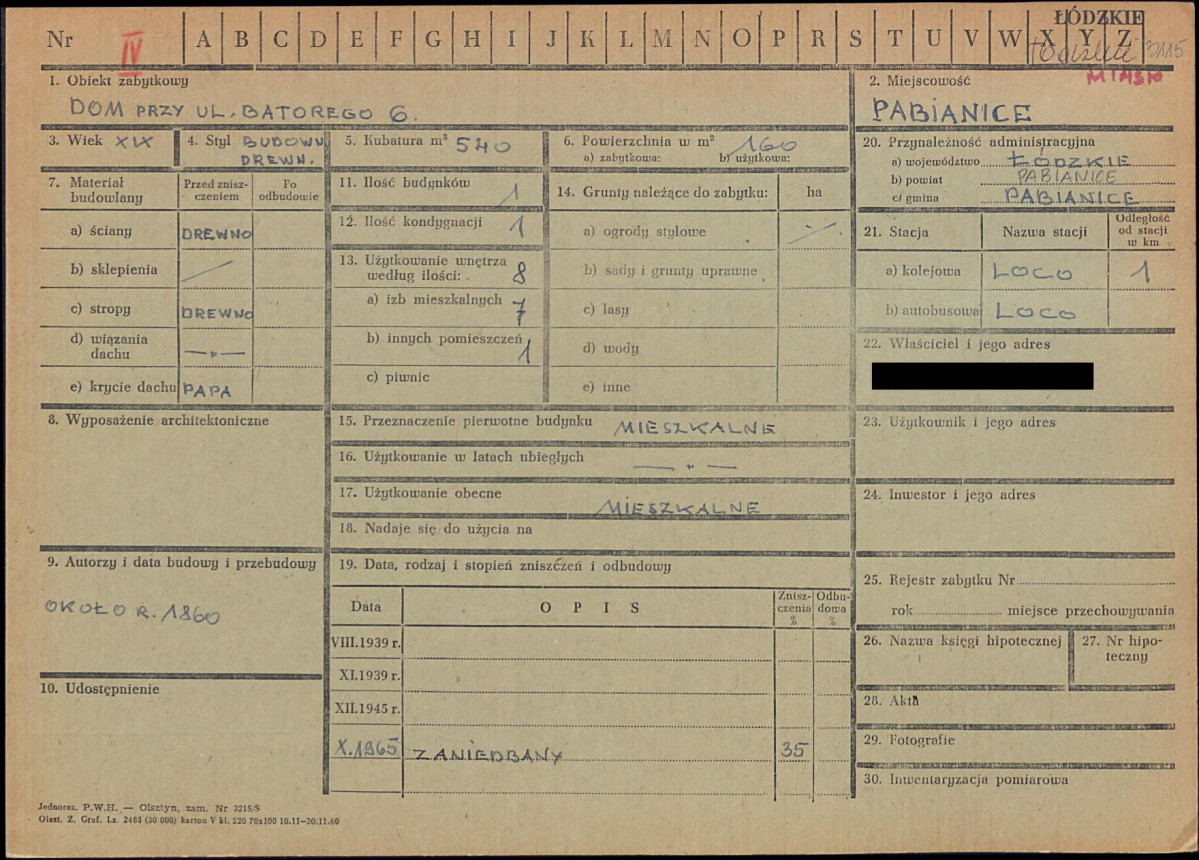 Nr IV A B C D E F G H I J K L M N O P R S T U V W X Y Z ŁÓDZKIE
Łódzkie 3115
MIASTO
1. Obiekt zabytkowy
DOM PRZY UL. BATOREGO 6.
2. Miejscowość
PABIANICE
3. Wiek XIX
4. Styl BUDOWN.
DREWN.
5. Kubatura m³ 540
6. Powierzchnia w m² 160
a) zabytkowa: b) użytkowa:
20. Przynależność administracyjna
a) województwo ŁÓDZKIE
b) powiat PABIANICE
c) gmina PABIANICE
7. Materiał budowlany
Przed znisz-
czeniem
Po
odbudowie
a) ściany DREWNO
b) sklepienia —
c) stropy DREWNO
d) wiązania
dachu —„—
e) krycie dachu PAPA
11. Ilość budynków 1
12. Ilość kondygnacji 1
13. Użytkowanie wnętrza
według ilości: 8
a) izb mieszkalnych 7
b) innych pomieszczeń 1
c) piwnic
14. Grunty należące do zabytku: ha
a) ogrody stylowe ·/·
b) sady i grunty uprawne
c) lasy
d) wody
e) inne
21. Stacja Nazwa stacji Odległość
od stacji
w km
a) kolejowa LOCO 1
b) autobusowa LOCO
22. Właściciel i jego adres
8. Wyposażenie architektoniczne
15. Przeznaczenie pierwotne budynku MIESZKALNE
16. Użytkowanie w latach ubiegłych —„—
17. Użytkowanie obecne MIESZKALNE
18. Nadaje się do użycia na
23. Użytkownik i jego adres
24. Inwestor i jego adres
9. Autorzy i data budowy i przebudowy
OKOŁO R. 1860
10. Udostępnienie
19. Data, rodzaj i stopień zniszczeń i odbudowy
Data OPIS Znisz-
czenia
%
Odbu-
dowa
%
VIII.1939 r.
XI.1939 r.
XII.1945 r.
X.1965 ZANIEDBANY 35
25. Rejestr zabytku Nr
rok miejsce przechowywania
26. Nazwa księgi hipotecznej
27. Nr hipo-
teczny
28. Akta
29. Fotografie
30. Inwentaryzacja pomiarowa
Jednoraz. P.W.H. — Olsztyn, zam. Nr 3215/S
Olszt. Z. Graf. Lz. 2483 (30 000) karton V kl. 220 70x100 10.11—30.11.60